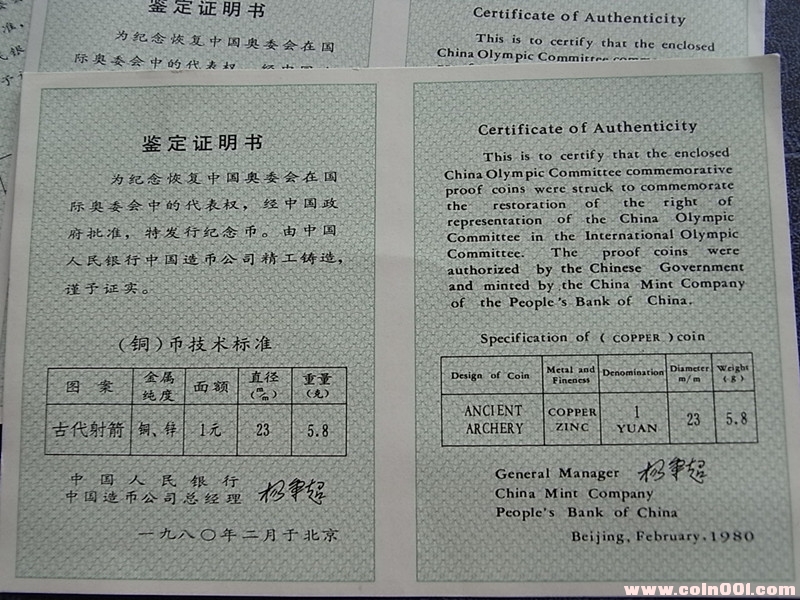 鉴定证明书
为纪念恢复中国奥委会在国
际奥委会中的代表权，经中国
Certificate of Authenticity
This is to certify that the enclosed
China Olympic Committee
鉴定证明书
为纪念恢复中国奥委会在国
际奥委会中的代表权，经中国政
府批准，特发行纪念币。由中国
人民银行中国造币公司精工铸造，
谨予证实。
（铜）币技术标准
图案 金属纯度 面额 直径(m/m) 重量(克)
古代射箭 铜、锌 1元 23 5.8
中国人民银行
中国造币公司总经理 杨秉超
一九八〇年二月于北京
Certificate of Authenticity
This is to certify that the enclosed
China Olympic Committee commemorative
proof coins were struck to commemorate
the restoration of the right of
representation of the China Olympic
Committee in the International Olympic
Committee. The proof coins were
authorized by the Chinese Government
and minted by the China Mint Company
of the People's Bank of China.
Specification of ( COPPER ) coin
Design of Coin Metal and Fineness Denomination Diameter m/m Weight (g)
ANCIENT ARCHERY COPPER ZINC 1 YUAN 23 5.8
General Manager 杨秉超
China Mint Company
People's Bank of China
Beijing, February, 1980
www.coin001.com